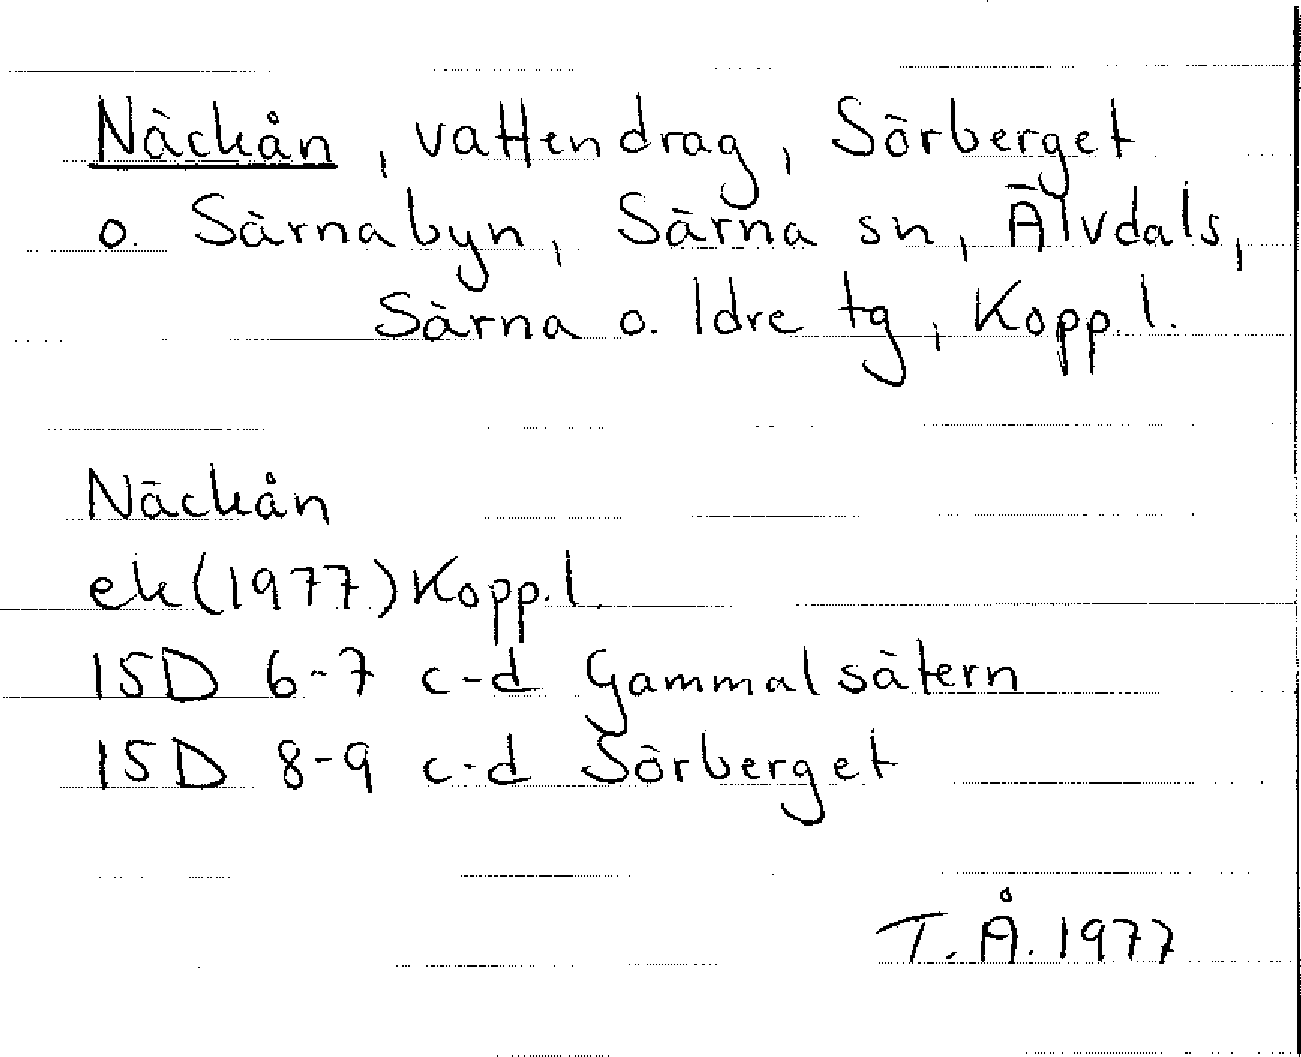 Näckån, vattendrag, Sörberget
o. Särnabyn, Särna sn, Älvdals,
Särna o. Idre tg, Kopp.l.
Näckån
ek (1977) Kopp.l.
15D 6-7 c-d Gammalsätern
15D 8-9 c-d Sörberget
T.Å. 1977